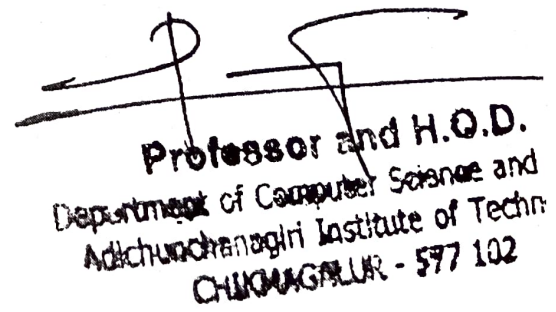 Professor and H.O.D.
Department of Computer Science and
Adichunchanagiri Institute of Techn
CHIKMAGALUR - 577 102